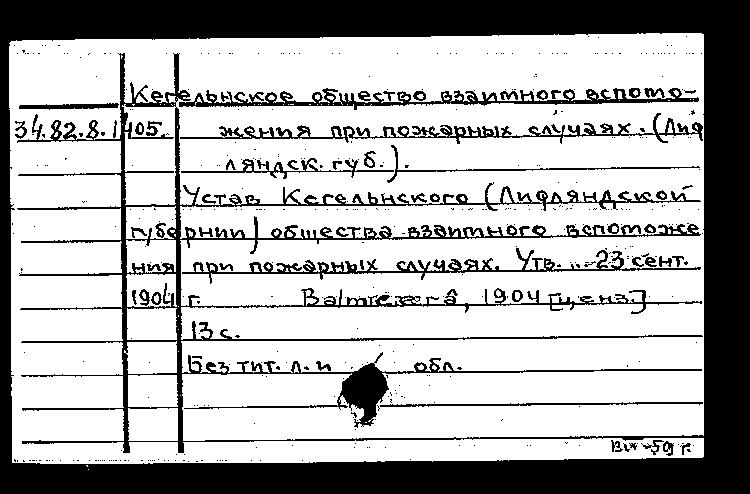 Кегельнское общество взаимного вспомо-
34.82.8.1405. жения при пожарных случаях. (Лиф
ляндск. губ.).
Устав Кегельнского (Лифляндской
губернии) общества взаимного вспоможе
ния при пожарных случаях. Утв. 23 сент.
1904 г. Valmeerâ, 1904 [ценз.]
13 с.
Без тит. л. и обл.